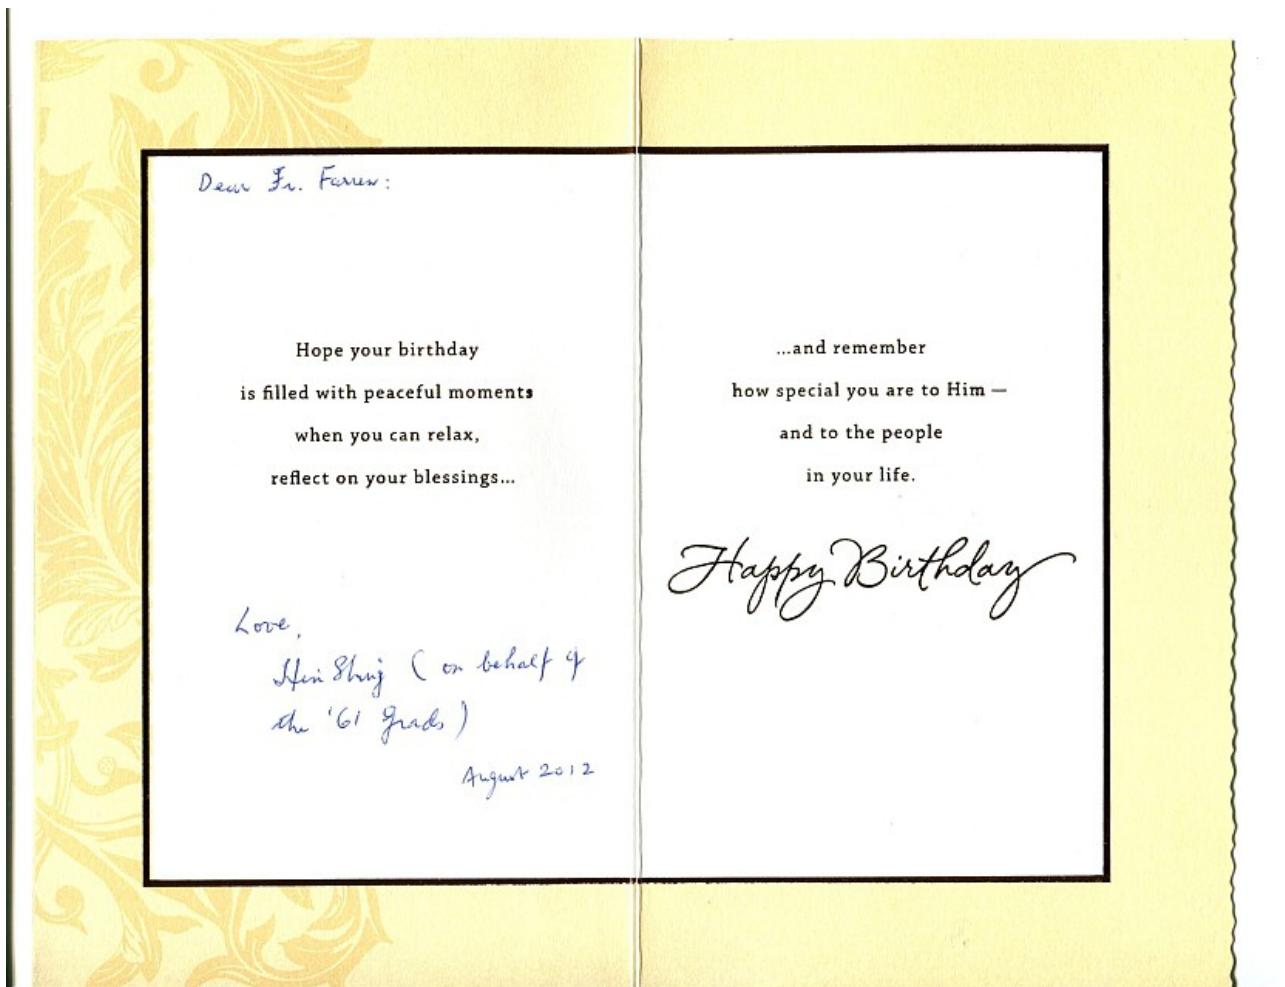 Dear Fr. Farren:
Hope your birthday
is filled with peaceful moments
when you can relax,
reflect on your blessings...
Love,
Hin Shing (on behalf of
the '61 Grads)
August 2012
...and remember
how special you are to Him —
and to the people
in your life.
Happy Birthday